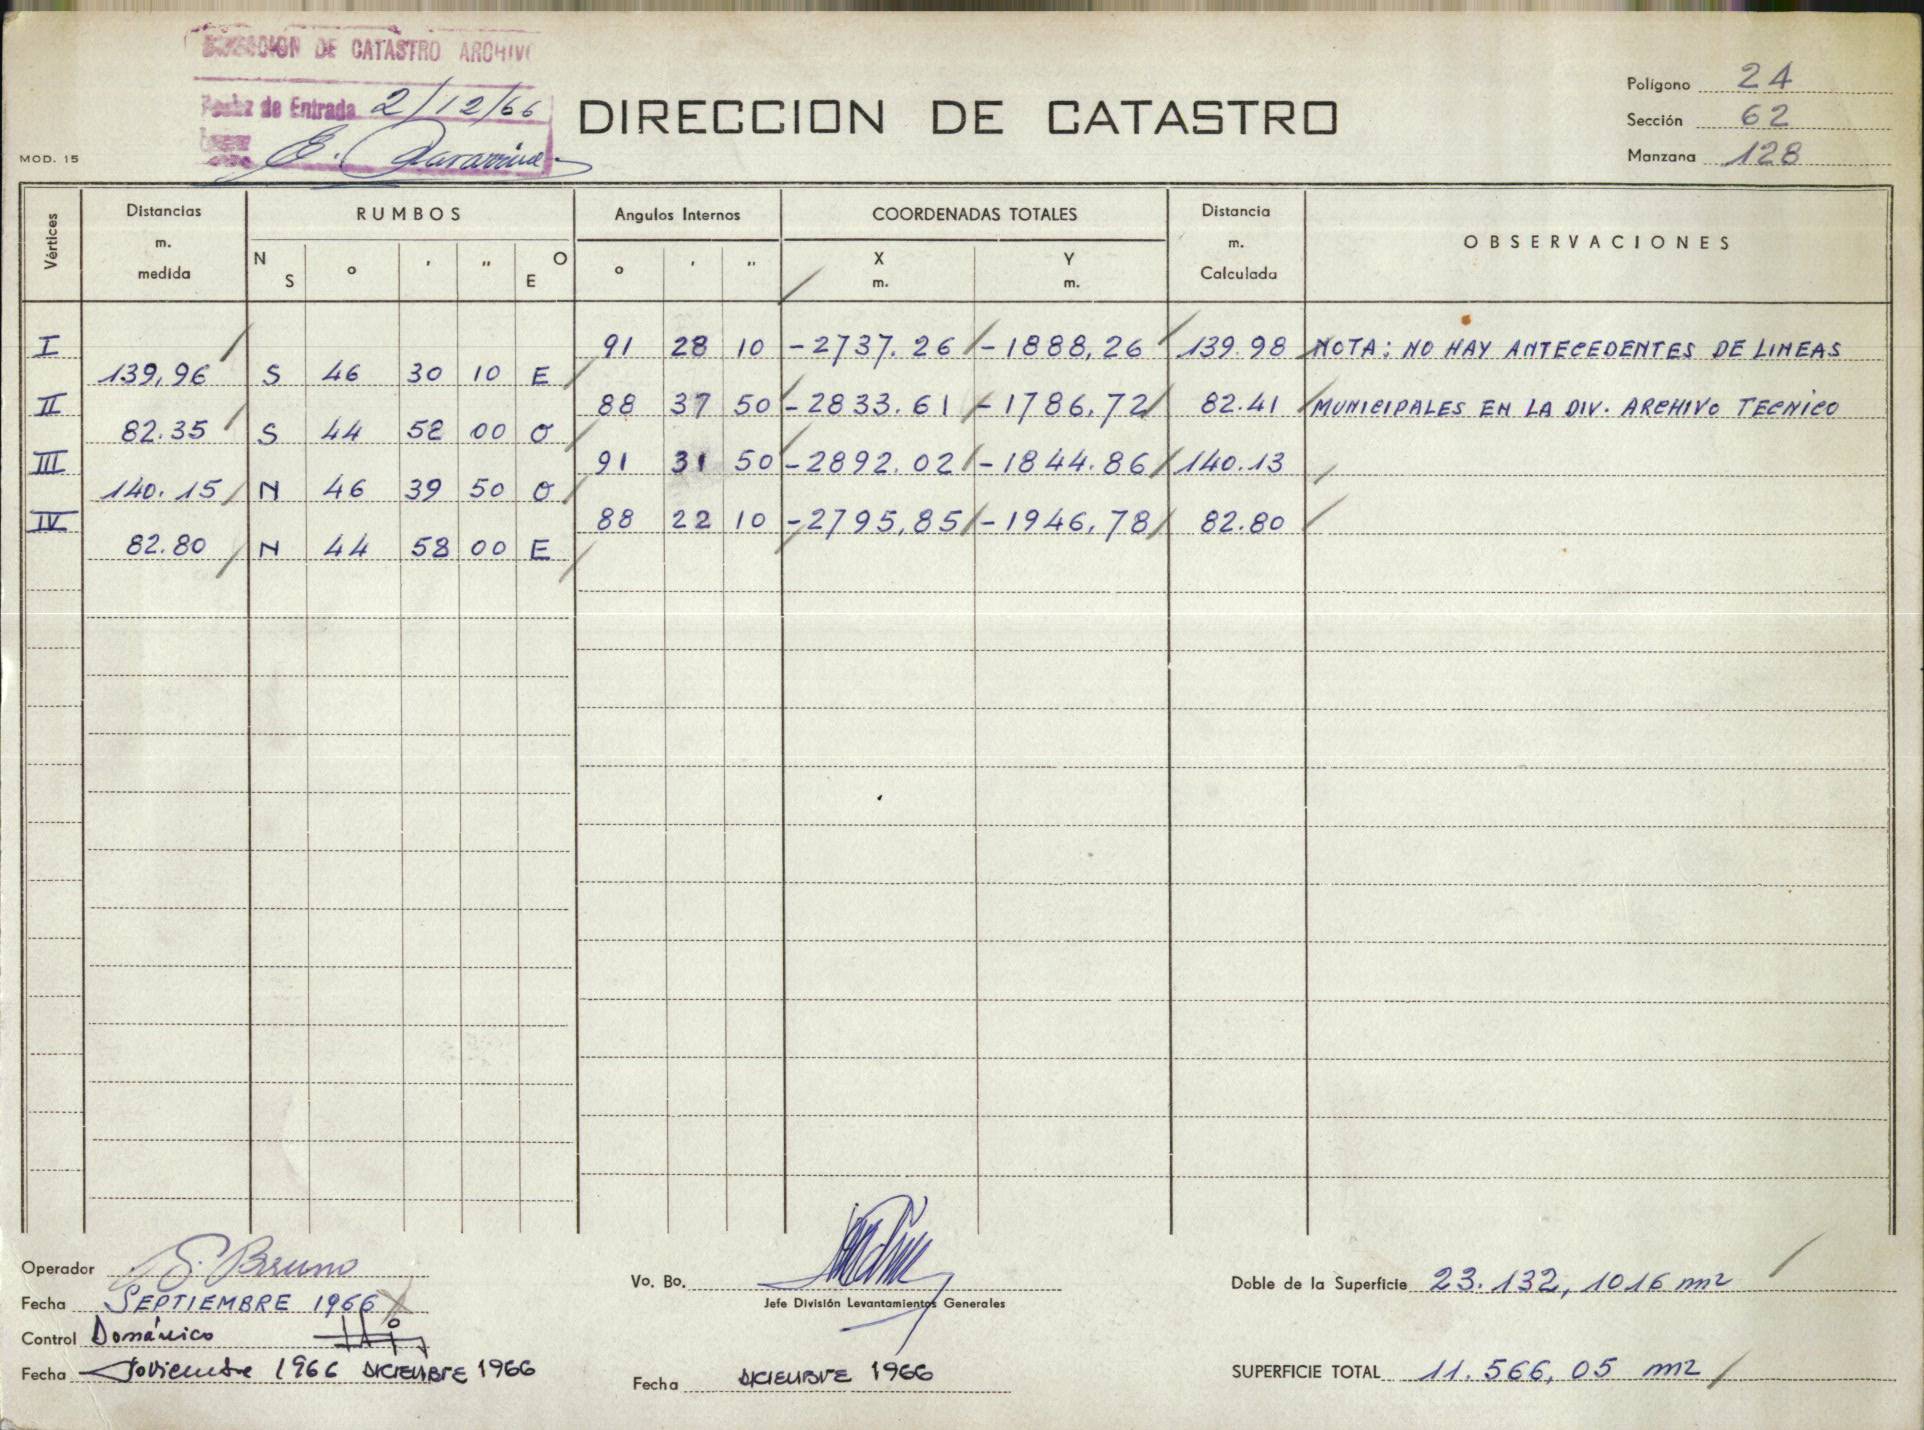 DIRECCION DE CATASTRO ARCHIVO
Fecha de Entrada 2/12/66
MOD. 15
DIRECCION DE CATASTRO
Polígono 24
Sección 62
Manzana 128
Vértices Distancias m. medida RUMBOS N S ° ' " O E Angulos Internos ° ' " COORDENADAS TOTALES X m. Y m. Distancia m. Calculada OBSERVACIONES
I 91 28 10 -2737.26 -1888,26 139.98 NOTA: NO HAY ANTECEDENTES DE LINEAS
139,96 S 46 30 10 E
II 88 37 50 -2833.61 -1786,72 82.41 MUNICIPALES EN LA DIV. ARCHIVO TECNICO
82.35 S 44 52 00 O
III 91 31 50 -2892.02 -1844.86 140.13
140.15 N 46 39 50 O
IV 88 22 10 -2795,85 -1946,78 82.80
82.80 N 44 58 00 E
Operador S. Bruno
Fecha SEPTIEMBRE 1966
Control Dománico
Fecha Noviembre 1966 DICIEMBRE 1966
Vo. Bo.
Jefe División Levantamientos Generales
Fecha DICIEMBRE 1966
Doble de la Superficie 23.132,1016 m2
SUPERFICIE TOTAL 11.566,05 m2